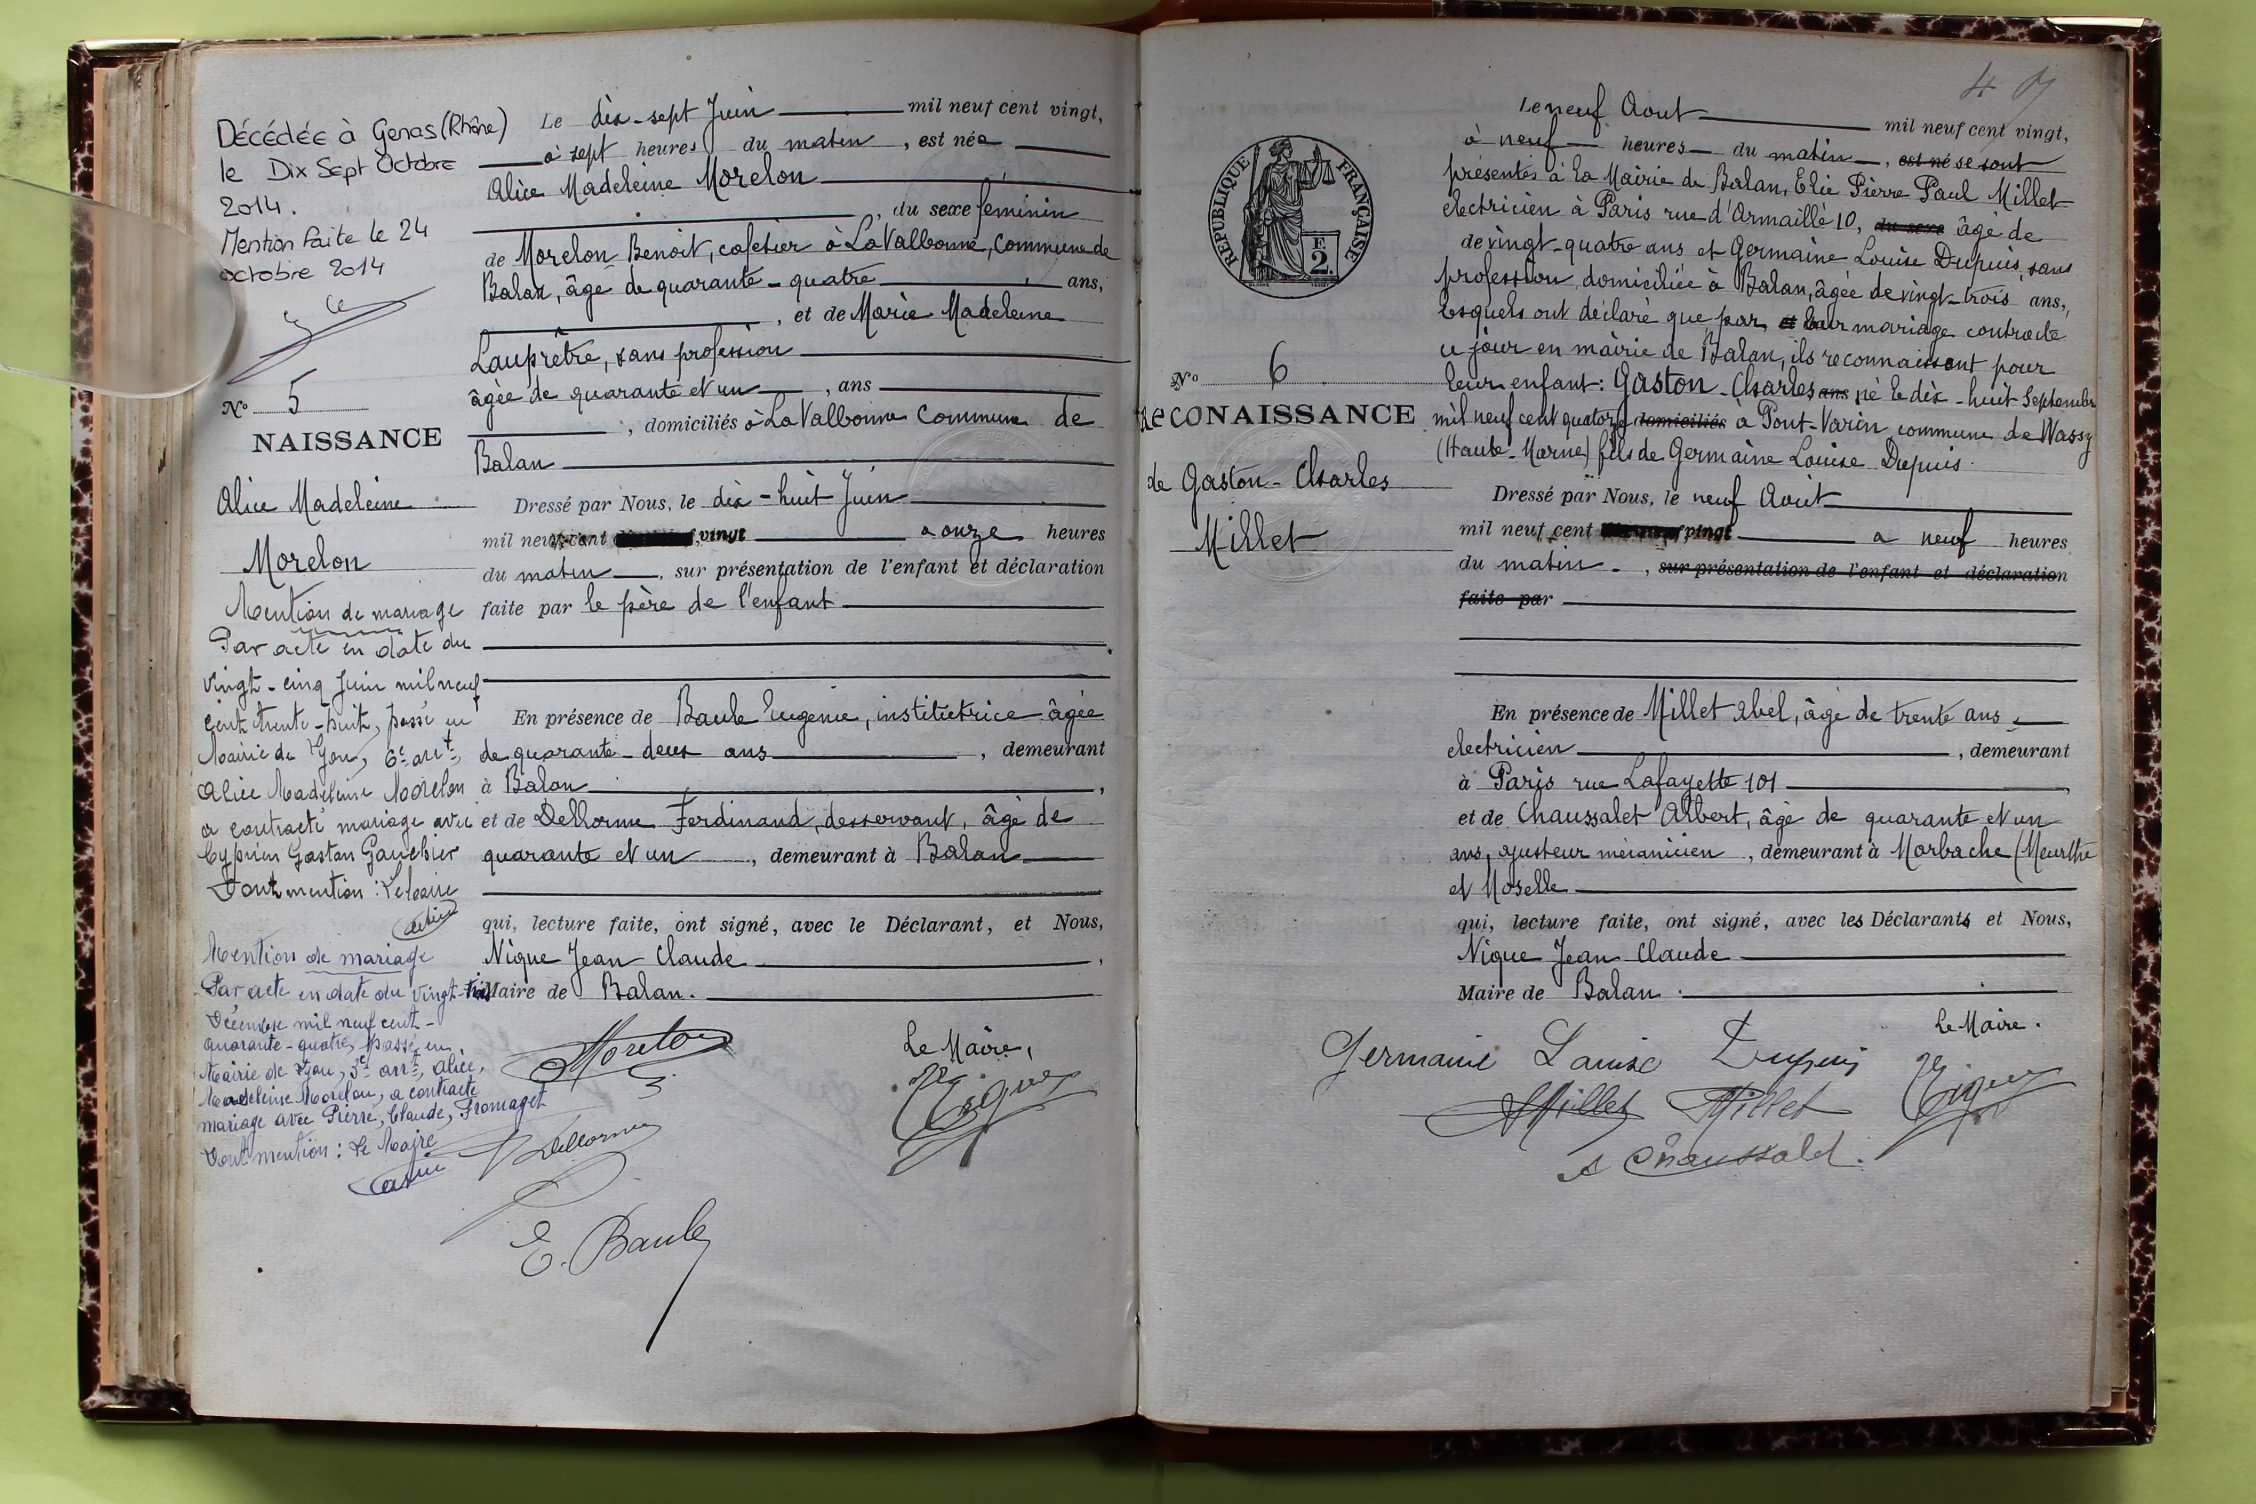 Décédée à Genas (Rhône)
le Dix Sept Octobre
2014.
Mention faite le 24
octobre 2014
N° 5
NAISSANCE
Alice Madeleine
Morelon
Mention de mariage
Par acte en date du
vingt-cinq Juin mil neuf
cent trente-huit, passé en
Mairie de Lyon, 6e arrt,
Alice Madeleine Morelon
a contracté mariage avec
Cyprien Gaston Gauchier
Dont mention : Le Maire
Mention de mariage
Par acte en date du vingt-trois
Décembre mil neuf cent-
quarante-quatre, passé en
Mairie de Lyon, 3e arrt, Alice,
Madeleine Morelon, a contracté
mariage avec Pierre, Claude, Fromaget
Dont mention : Le Maire
Le dix-sept Juin mil neuf cent vingt,
à sept heures du matin, est née
Alice Madeleine Morelon
, du sexe féminin
de Morelon Benoit, cafetier à La Valbonne, commune de
Balan, âgé de quarante-quatre ans,
, et de Marie Madeleine
Lauprêtre, sans profession
âgée de quarante et un, ans
, domiciliés à La Valbonne commune de
Balan
Dressé par Nous, le dix-huit Juin
mil neuf cent vingt a onze heures
du matin, sur présentation de l'enfant et déclaration
faite par le père de l'enfant
En présence de Baule Eugénie, institutrice âgée
de quarante-deux ans, demeurant
à Balan,
et de Dellorme Ferdinand, desservant, âgé de
quarante et un, demeurant à Balan
qui, lecture faite, ont signé, avec le Déclarant, et Nous,
Nique Jean Claude,
Maire de Balan.
Morelon
Le Maire,
Nique
Dellorme
E. Baule
4
RÉPUBLIQUE FRANÇAISE
F.
2.
N° 6
RECONAISSANCE
de Gaston-Charles
Millet
Le neuf Aout mil neuf cent vingt,
à neuf heures du matin, est né se sont
présentés à la Mairie de Balan, Elie Pierre Paul Millet
electricien à Paris rue d'Armaillé 10, du sexe âgé de
de vingt-quatre ans et Germaine Louise Dupuis, sans
profession, domiciliée à Balan, âgée de vingt-trois ans,
lesquels ont déclaré que par et leur mariage contracté
ce jour en mairie de Balan, ils reconnaissent pour
leur enfant : Gaston-Charles ans né le dix-huit Septembre
mil neuf cent quatorze domiciliés à Pont-Varin commune de Wassy
(Haute-Marne) fils de Germaine Louise Dupuis.
Dressé par Nous, le neuf Août
mil neuf cent vingt a neuf heures
du matin, sur présentation de l'enfant et déclaration
faite par
En présence de Millet Abel, âgé de trente ans,
electricien, demeurant
à Paris rue Lafayette 101,
et de Chaussalet Albert, âgé de quarante et un
ans, ajusteur mécanicien, demeurant à Marbache (Meurthe
et Moselle
qui, lecture faite, ont signé, avec les Déclarants et Nous,
Nique Jean Claude
Maire de Balan.
Le Maire.
Germaine Louise Dupuis
Millet Millet Nique
A Chaussalet